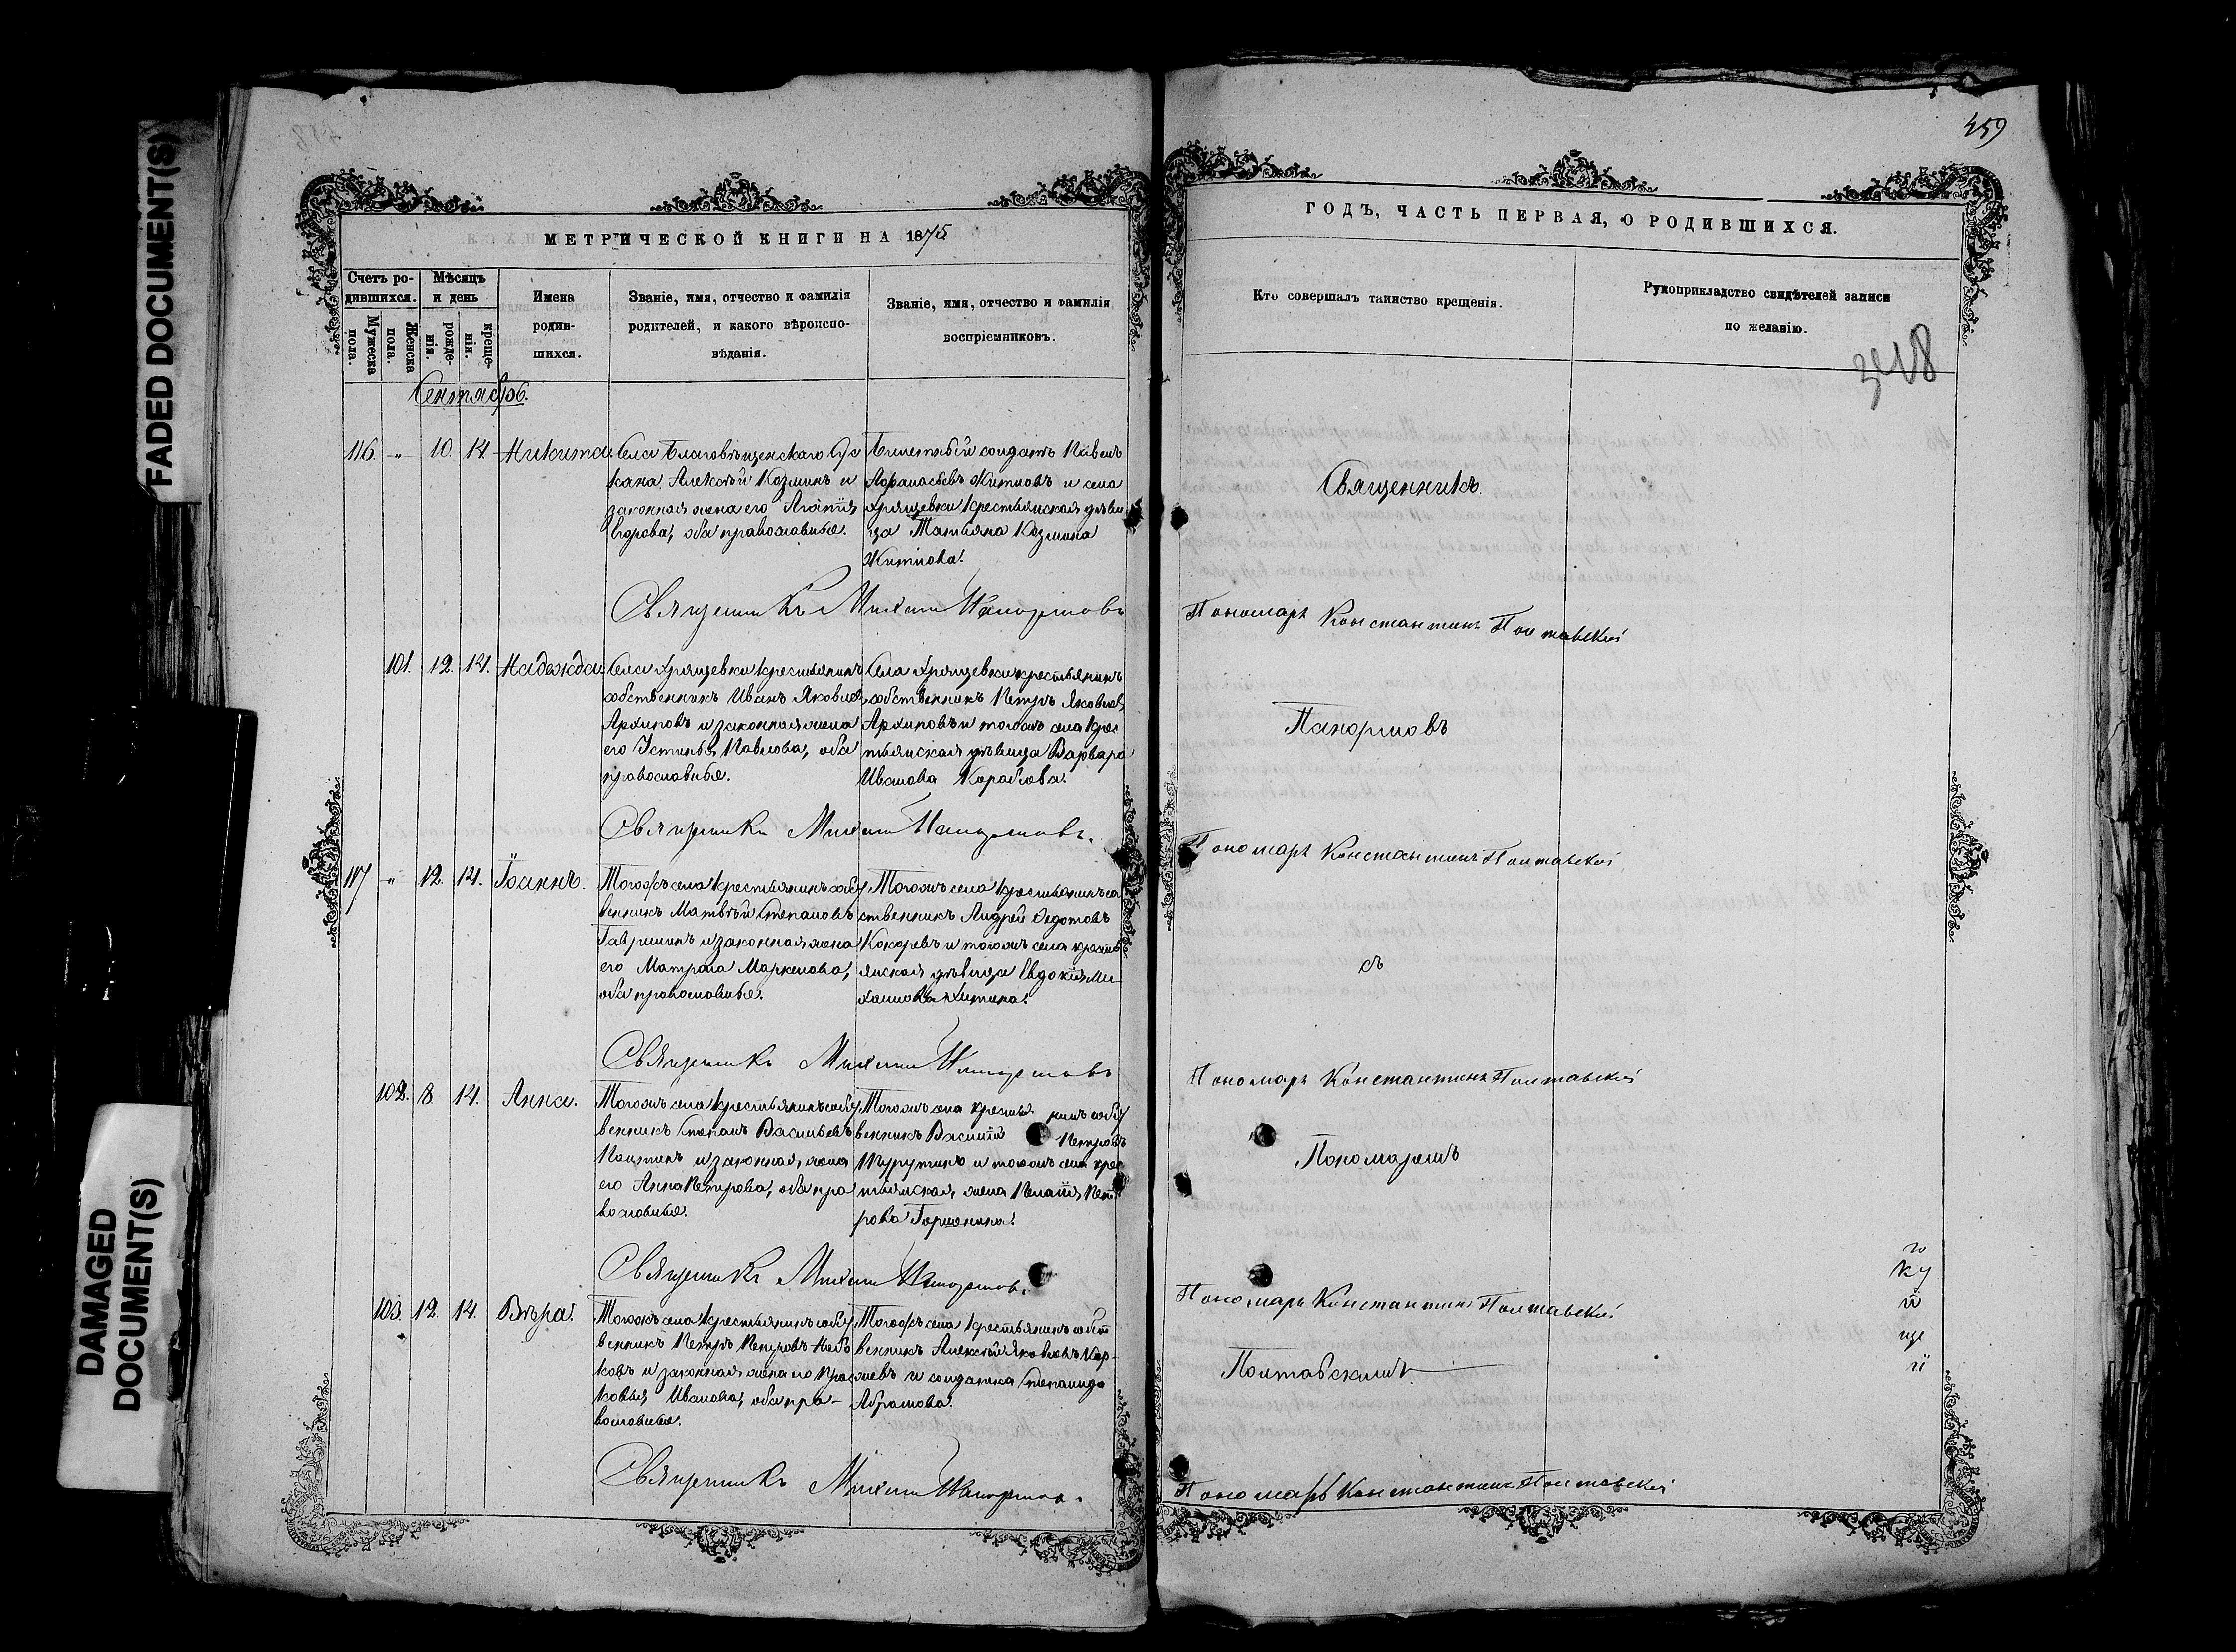 FADED DOCUMENT(S)
DAMAGED
DOCUMENT(S)
МЕТРИЧЕСКОЙ КНИГИ НА 1875
Счетъ ро-
дившихся.
Мужеска
пола.
Женска
пола.
Мѣсяцъ
и день
рожде-
нія.
креще-
нія.
Имена
родив-
шихся.
Званіе, имя, отчество и фамилія
родителей, и какого вѣроиспо-
вѣданія.
Званіе, имя, отчество и фамилія
воспріемниковъ.
Сентябрь.
116. -„- 10. 14. Никита.
Села Благовѣщенскаго Сус
кана, Алексѣй Козминъ и
законная жена его Агапія
Егорова, оба православные.
Билетный солдатъ Павелъ
Афанасьевъ Житловъ и села
Хрящевки крестьянская дѣви
ца Татьяна Козмина
Житлова.
Священникъ Михаилъ Панормовъ
101. 12. 14. Надежда.
Села Хрящевки крестьянинъ
собственникъ Иванъ Яковлев
Архиповъ и законная жена
его Устинья Павлова, оба
православные.
Села Хрящевки крестьянинъ
собственникъ Петръ Яковлев
Архиповъ и тогожъ села крес
тьянская дѣвица Варвара
Иванова Кораблова.
Священникъ Михаилъ Панормовъ.
117 „ 12. 14. Іоаннъ.
Тогожъ села крестьянинъ собст
венникъ Матвѣй Степановъ
Гаврилинъ и законная жена
его Матрона Маркелова,
оба православные.
Тогожъ села крестьянинъ соб
ственникъ Андрей Федотовъ
Кокоревъ и тогожъ села кресть
янская дѣвица Евдокія Ми
хаилова
Священникъ Михаилъ Панормовъ
102. 8 14. Анна.
Тогожъ села крестьянинъ собст
венникъ Степанъ Васильевъ
и законная жена
его Анна Петрова, оба пра
вославные.
Тогожъ села крестья нинъ собст
венникъ Василій Петровъ
и тогожъ села крес
тьянская жена Пелагія Пет
рова Горшенина.
Священникъ Михаилъ Панормовъ.
103. 12. 14. Вѣра.
Тогожъ села крестьянинъ собст
венникъ Петръ Петровъ Набо
ковъ и законная жена его Прас
ковья Иванова, оба пра-
вославные.
Тогожъ села крестьянинъ собст
венникъ Алексѣй Яковлевъ
и солдатка Степанида
Абрамова.
Священникъ Михаилъ Панормовъ.
459
ГОДЪ, ЧАСТЬ ПЕРВАЯ, О РОДИВШИХСЯ.
Кто совершалъ таинство крещенія.
Рукоприкладство свидѣтелей записи
по желанію.
348
Священникъ.
Пономарь Константинъ Полтавскій
Панормовъ
Пономарь Константинъ Полтавскій
съ
Пономарь Константинъ Полтавскій
Пономаремъ
Пономарь Константинъ Полтавскій
Полтавскимъ.
Пономарь Константинъ Полтавскій